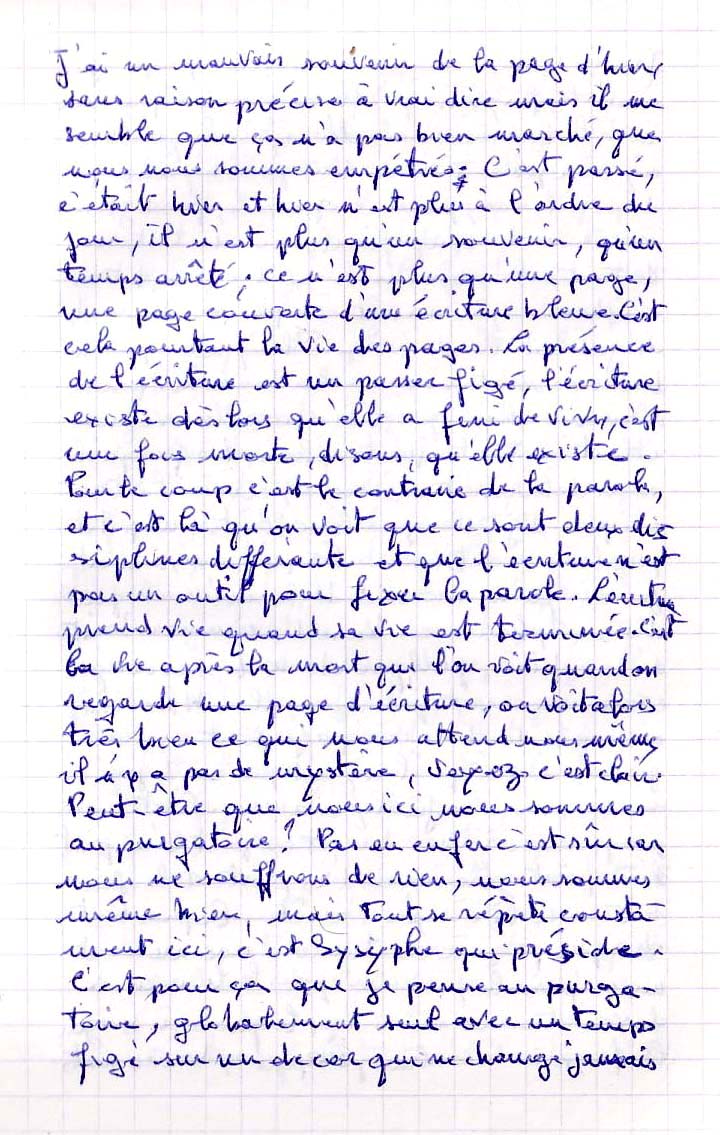 J'ai un mauvais souvenir de la page d'hier,
sans raison précise à vrai dire mais il me
semble que ça n'a pas bien marché, que
nous nous sommes empétrés. C'est passé,
c'était hier et hier n'est plus à l'ordre du
jour, il n'est plus qu'un souvenir, qu'un
temps arrêté, ce n'est plus qu'une page,
une page couverte d'une écriture bleue. C'est
cela pourtant la vie des pages. La présence
de l'écriture est un passer figé, l'écriture
existe dès lors qu'elle a fini de vivre, c'est
une fois morte, disons, qu'elle existe.
Pour le coup c'est le contraire de la parole,
et c'est là qu'on voit que ce sont deux dis
siplines différante et que l'écriture n'est
pas un outil pour fixer la parole. L'écriture
prend vie quand sa vie est terminée. C'est
la vie après la mort que l'on voit quand on
regarde une page d'écriture, on voit alors
très bien ce qui nous attend nous même,
il n'y a pas de mystère, voyez c'est clair.
Peut-être que nous ici nous sommes
au purgatoire? Pas en enfer c'est sûr car
nous ne souffrons de rien, nous sommes
même bien, mais tout se répète consta
ment ici, c'est Sysiphe qui préside.
C'est pour ça que je pense au purga-
toire, globalement seul avec un temps
figé sur un decor qui ne change jamais